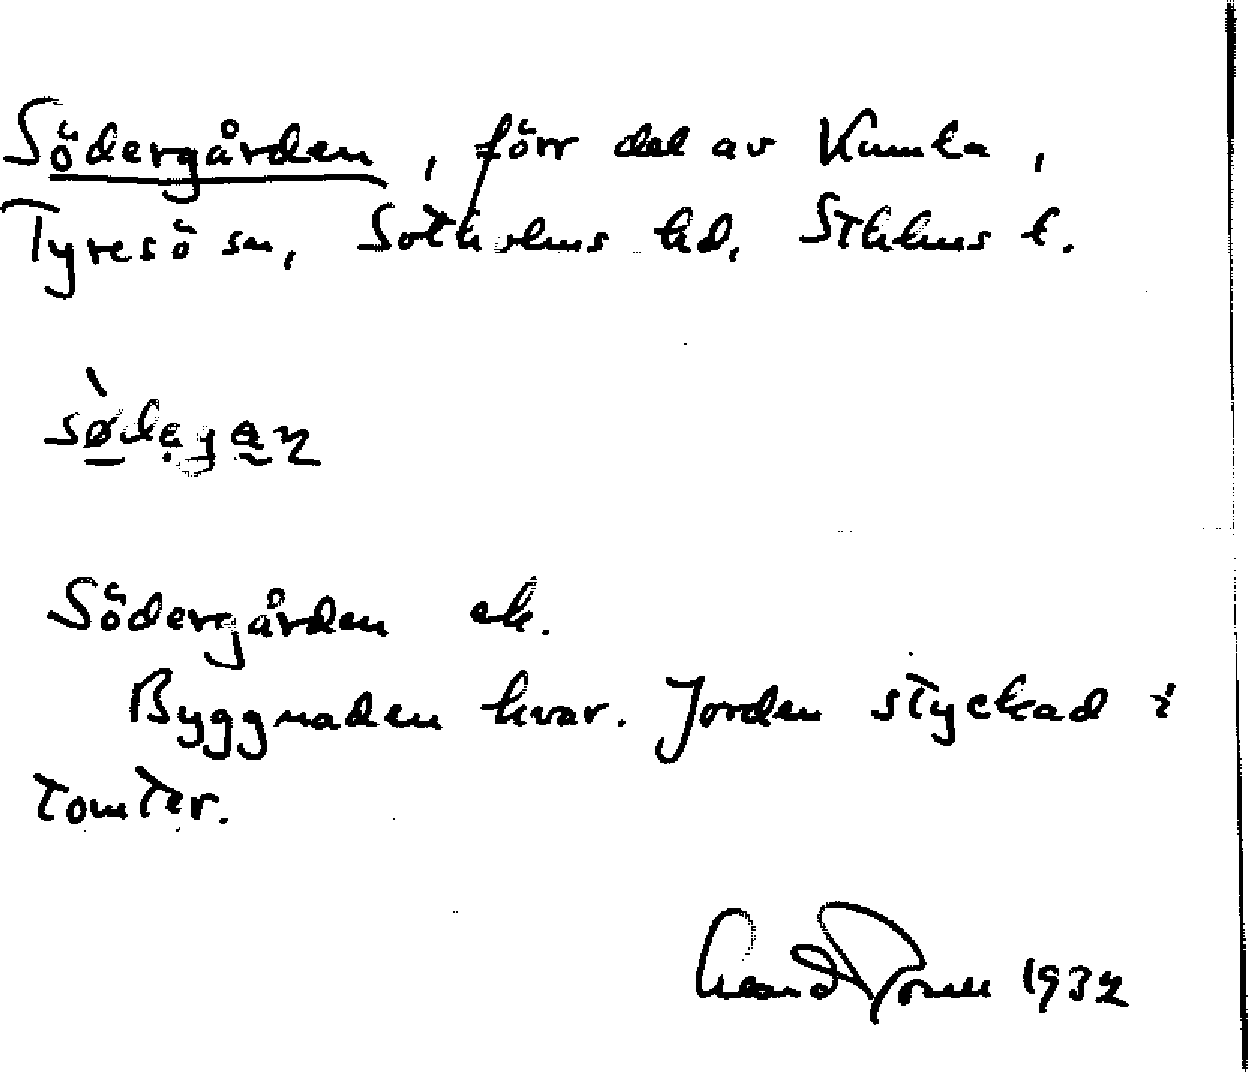 Södergården, förr del av Kumla,
Tyresö sn, Sotholms hd, Sthlms l.
Södergården ek.
Byggnaden kvar. Jorden styckad i
tomter.
1932